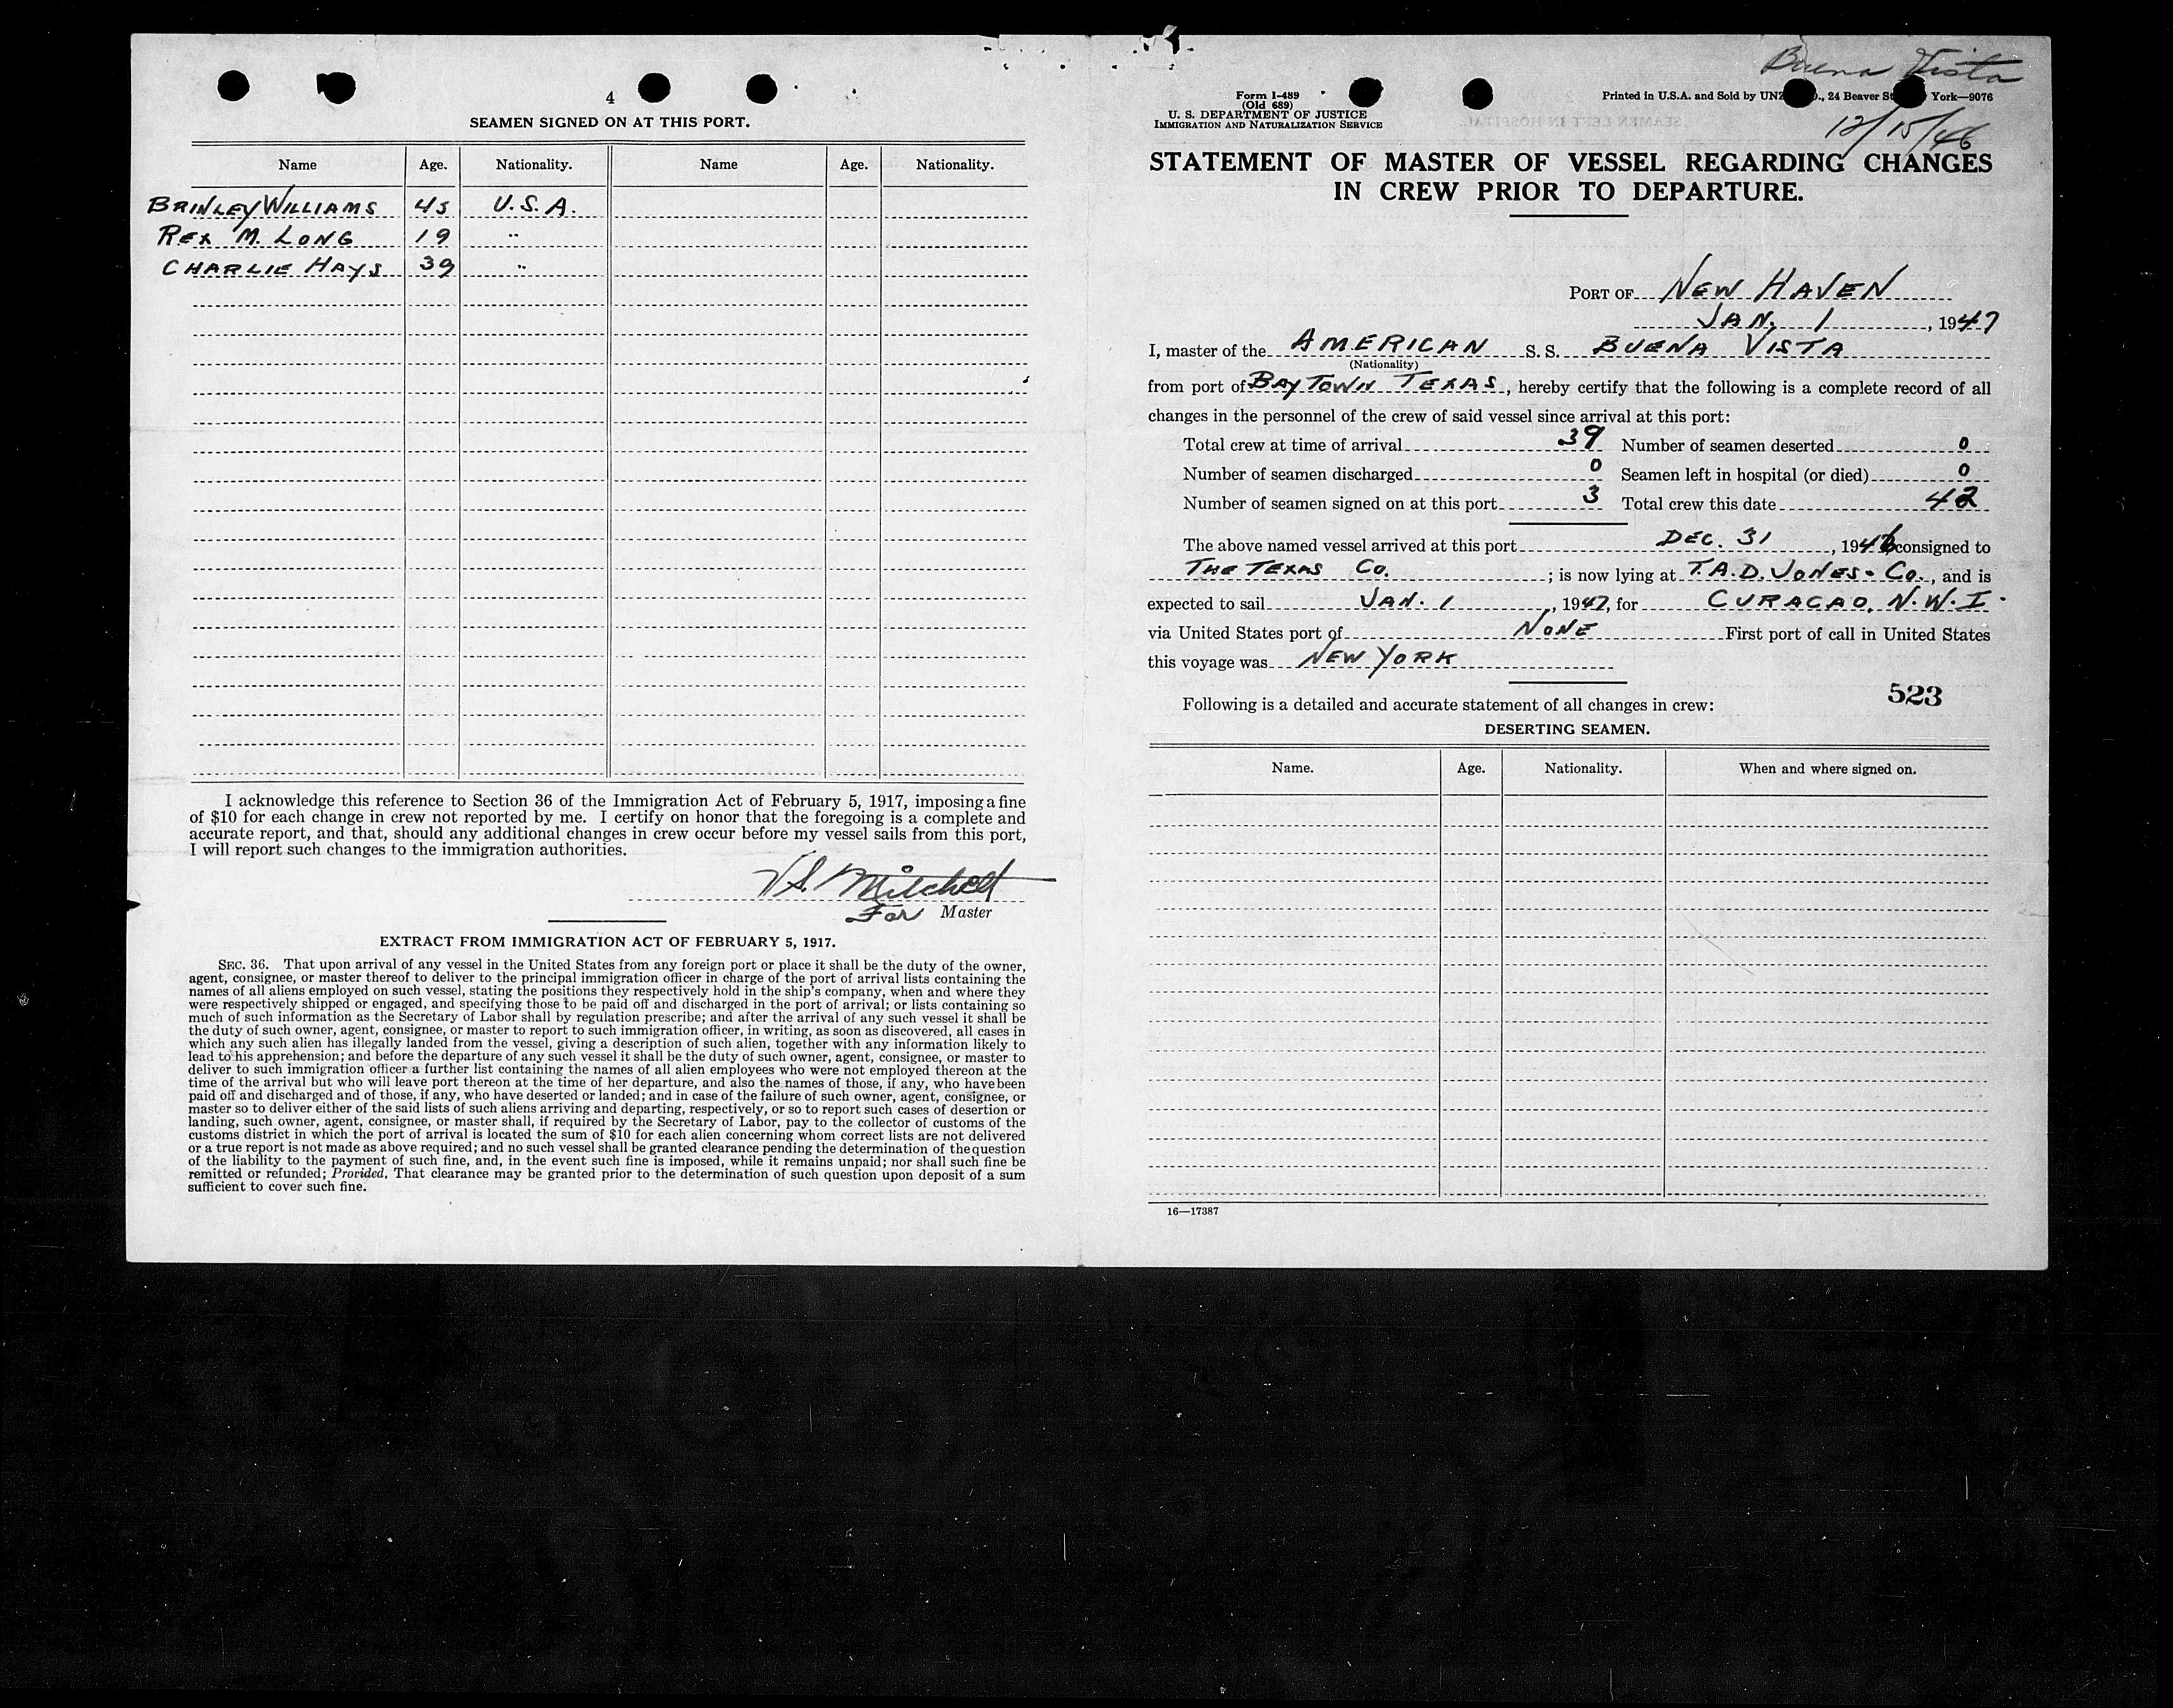 4
SEAMEN SIGNED ON AT THIS PORT.
Name Age. Nationality. Name Age. Nationality.
BRINLEY WILLIAMS 45 U.S.A.
REX M. LONG 19 "
CHARLIE HAYS 39 "
I acknowledge this reference to Section 36 of the Immigration Act of February 5, 1917, imposing a fine
of $10 for each change in crew not reported by me. I certify on honor that the foregoing is a complete and
accurate report, and that, should any additional changes in crew occur before my vessel sails from this port,
I will report such changes to the immigration authorities.
Mitchell
For Master
EXTRACT FROM IMMIGRATION ACT OF FEBRUARY 5, 1917.
SEC. 36. That upon arrival of any vessel in the United States from any foreign port or place it shall be the duty of the owner,
agent, consignee, or master thereof to deliver to the principal immigration officer in charge of the port of arrival lists containing the
names of all aliens employed on such vessel, stating the positions they respectively hold in the ship's company, when and where they
were respectively shipped or engaged, and specifying those to be paid off and discharged in the port of arrival; or lists containing so
much of such information as the Secretary of Labor shall by regulation prescribe; and after the arrival of any such vessel it shall be
the duty of such owner, agent, consignee, or master to report to such immigration officer, in writing, as soon as discovered, all cases in
which any such alien has illegally landed from the vessel, giving a description of such alien, together with any information likely to
lead to his apprehension; and before the departure of any such vessel it shall be the duty of such owner, agent, consignee, or master to
deliver to such immigration officer a further list containing the names of all alien employees who were not employed thereon at the
time of the arrival but who will leave port thereon at the time of her departure, and also the names of those, if any, who have been
paid off and discharged and of those, if any, who have deserted or landed; and in case of the failure of such owner, agent, consignee, or
master so to deliver either of the said lists of such aliens arriving and departing, respectively, or so to report such cases of desertion or
landing, such owner, agent, consignee, or master shall, if required by the Secretary of Labor, pay to the collector of customs of the
customs district in which the port of arrival is located the sum of $10 for each alien concerning whom correct lists are not delivered
or a true report is not made as above required; and no such vessel shall be granted clearance pending the determination of the question
of the liability to the payment of such fine, and, in the event such fine is imposed, while it remains unpaid; nor shall such fine be
remitted or refunded; Provided, That clearance may be granted prior to the determination of such question upon deposit of a sum
sufficient to cover such fine.
Buena Vista
12/15/46
Form I-489
(Old 689)
U. S. DEPARTMENT OF JUSTICE
IMMIGRATION AND NATURALIZATION SERVICE
Printed in U.S.A. and Sold by UNZ 24 Beaver St York—9076
STATEMENT OF MASTER OF VESSEL REGARDING CHANGES
IN CREW PRIOR TO DEPARTURE.
PORT OF NEW HAVEN
JAN. 1, 1947
I, master of the AMERICAN S. S. BUENA VISTA
(Nationality)
from port of BAYTOWN TEXAS, hereby certify that the following is a complete record of all
changes in the personnel of the crew of said vessel since arrival at this port:
Total crew at time of arrival 39 Number of seamen deserted 0
Number of seamen discharged 0 Seamen left in hospital (or died) 0
Number of seamen signed on at this port 3 Total crew this date 42
The above named vessel arrived at this port DEC. 31, 1946 consigned to
THE TEXAS CO.; is now lying at T.A.D. JONES - CO., and is
expected to sail JAN. 1, 1947, for CURACAO, N.W.I.
via United States port of NONE First port of call in United States
this voyage was NEW YORK
523
Following is a detailed and accurate statement of all changes in crew:
DESERTING SEAMEN.
Name. Age. Nationality. When and where signed on.
16—17387